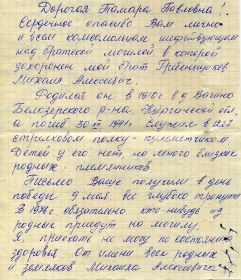 Дорогая Тамара Павловна!
Сердечное спасибо Вам лично
и всем комсомольцам шефствующим
над братской могилой в которой
захоронен мой брат Гребенщиков
Михаил Алексеевич.
Родился он в 1910 г в д Вагино
Белозерского р-на, Курганской обл,
а погиб 30 1941 г. служил в 1227
стрелковом полку - пулеметчиком
Детей у его нет но много близких
родных - племянников
Письмо Ваше получили в день
победы 9 мая. Все глубоко тронуты
В 1976 г обязательно кто-нибудь из
родных приедут на могилу.
Я, приехать не могу по состоянию
здоровья От имени всех родных
и Михаила Алексеевича